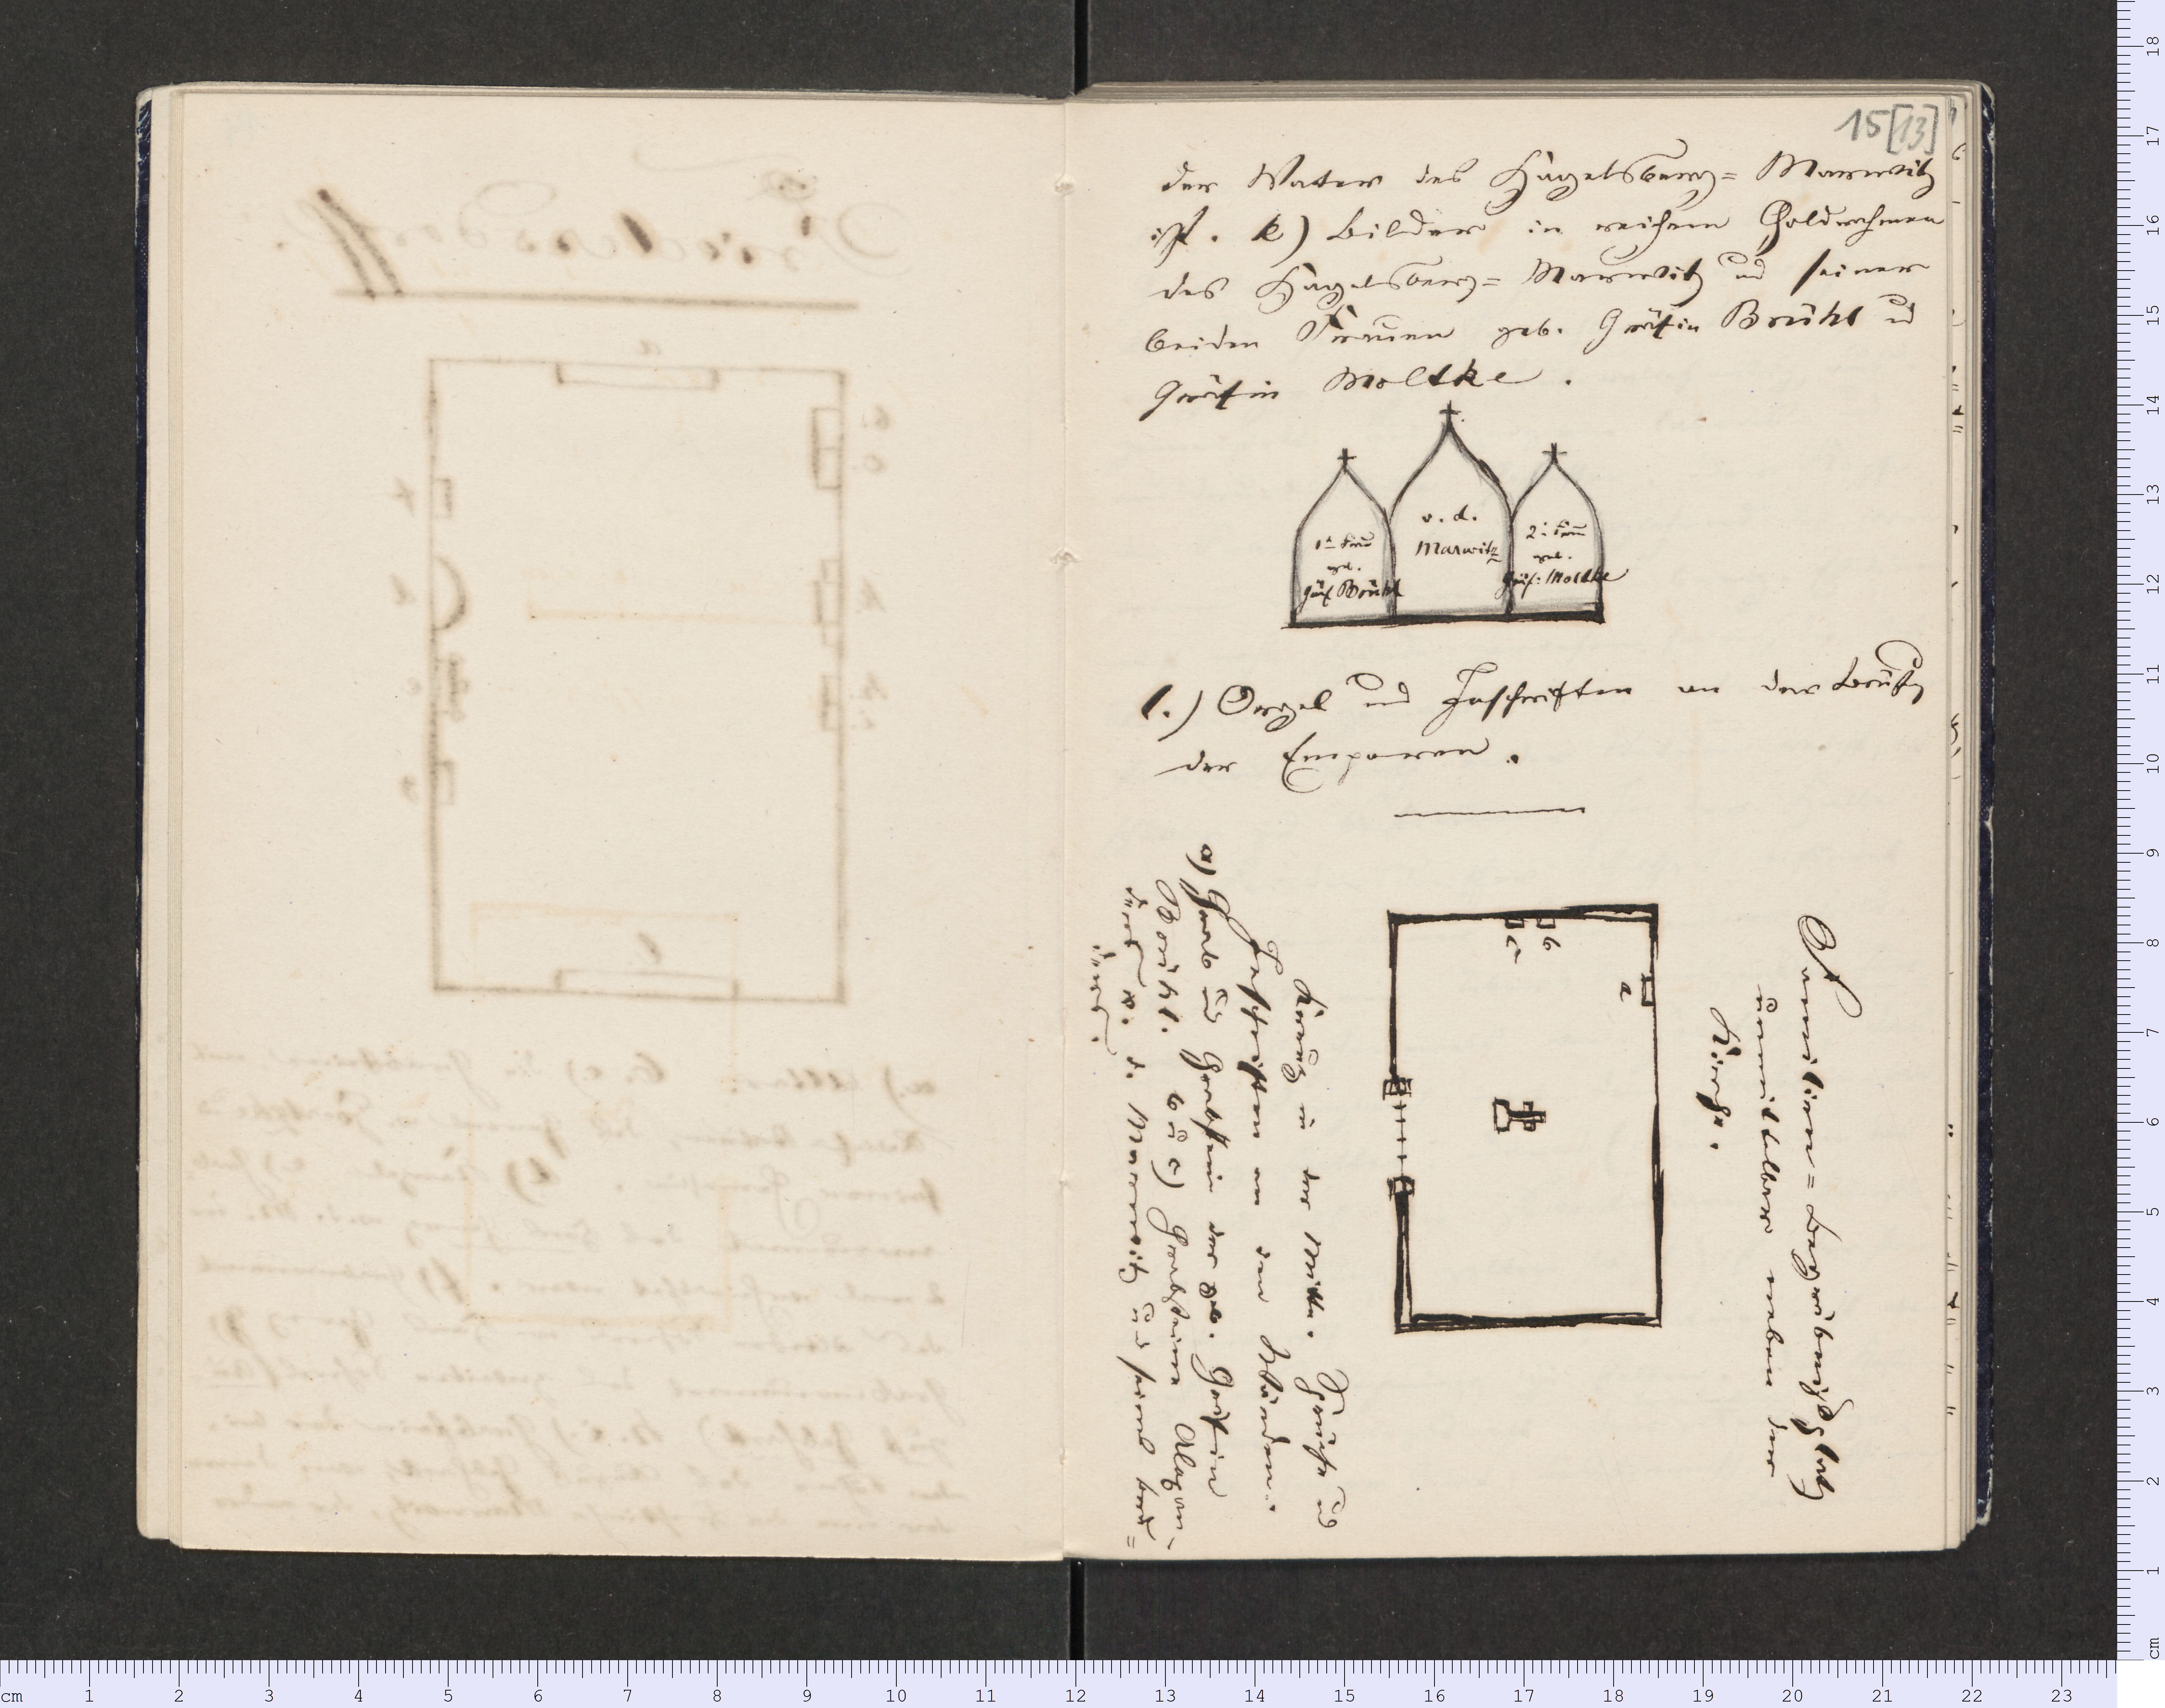 15[13]
der Vater des Hagelsberg=Marwitz
ist. k) Bilder in reichem Goldrahmen
des Hagelsberg=Marwitz und seiner
beiden Frauen geb. Gräfin Brühl u
Gräfin Moltke.
1te Frau
geb.
Gräf. Brühl
v. d.
Marwitz
2te Frau
geb.
Gräf. Moltke
l.) Orgel und Inschriften an der Brüstg
der Emporen.
Familien=Begräbnißplatz
unmittelbar neben der
Kirche.
a
b
c
Kreutz in der Mitte. Grüfte und
Inschriften an den Wänden.
a) Grab und Grabstein der geb. Gräfin
Brühl. b u c) Grabsteine Alexan-
ders v. d. Marwitz und seines Bru=
ders.